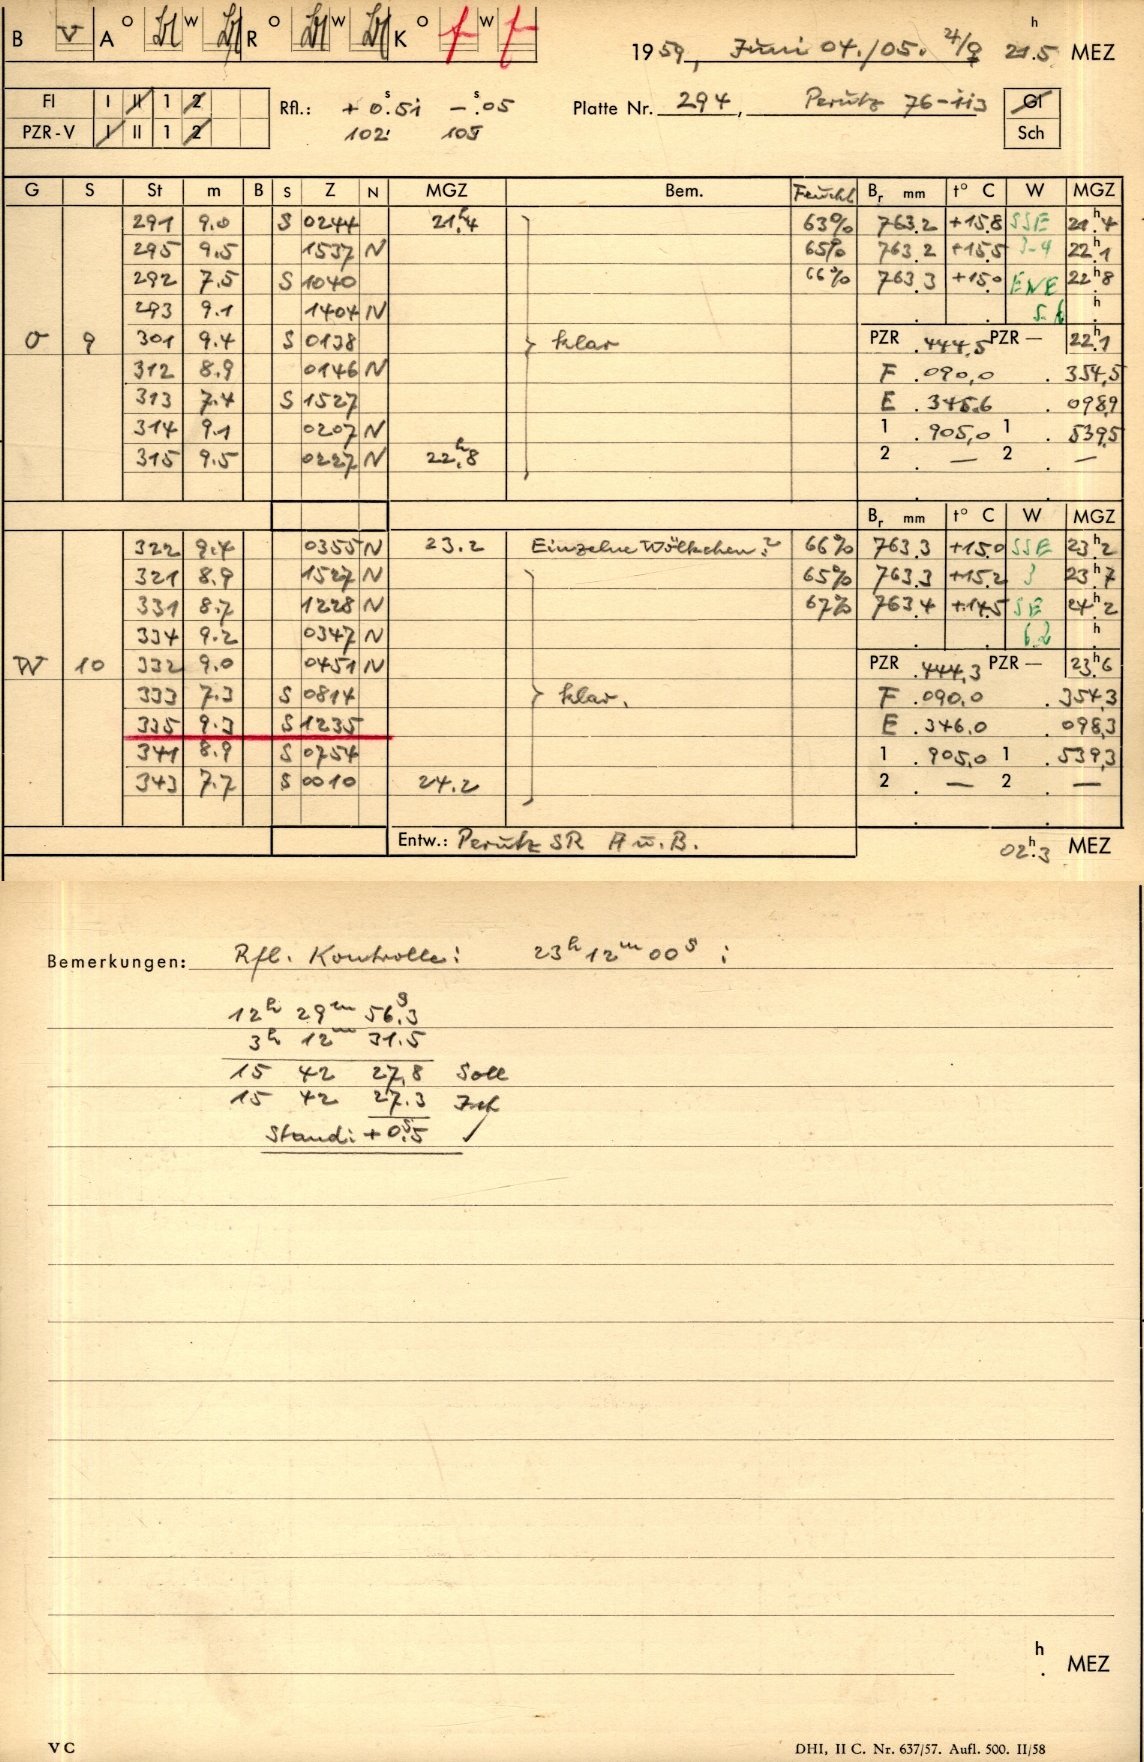 B V A O W R O W K O f W f
1959, Juni 04./05. ♃/♀ 21.5 h MEZ
FI I II 1 2 Rfl.: + 0.s51 – .s05 Platte Nr. 294, Perutz 76-113 Gl
PZR-V I II 1 2 102 105 Sch
G S St m B S Z N MGZ Bem. Feucht Br mm t° C W MGZ
291 9.0 S 0244 21h.4 63% 763.2 +15.8 SSE 21h.4
295 9.5 1537 N 65% 763.2 +15.5 3-4 22h.1
292 7.5 S 1040 66% 763.3 +15.0 ENE 22h.8
293 9.1 1404 N h
O 9 301 9.4 S 0138 klar PZR .444,5 PZR — 22h.1
312 8.9 0146 N F .090,0 . 354,5
313 7.4 S 1527 E .345.6 . 098,9
314 9.1 0207 N 1 .905,0 1 . 539,5
315 9.5 0227 N 22h.8 2 . — 2 . —
Br mm t° C W MGZ
322 9.4 0355 N 23.2 Einzelne Wölkchen? 66% 763.3 +15.0 SSE 23h.2
321 8.9 1527 N 65% 763.3 +15.2 3 23h.7
331 8.7 1228 N 67% 763.4 +14.5 SE 24h.2
334 9.2 0347 N 6.2 h
W 10 332 9.0 0451 N PZR .444,3 PZR — 23h.6
333 7.3 S 0814 klar. F .090.0 . 354,3
335 9.3 S 1235 E .346.0 . 098,3
341 8.9 S 0754 1 .905,0 1 . 539,3
343 7.7 S 0010 24.2 2 . — 2 . —
Entw.: Perutz SR A u. B. 02h.3 MEZ
Bemerkungen: Rfl. Kontrolle: 23h 12m 00s :
12h 29m 56s.3
3h 12m 31.5
15 42 27,8 Soll
15 42 27.3 Ist
Stand: + 0s.5 ✓
h . MEZ
VC DHI, II C. Nr. 637/57. Aufl. 500. II/58